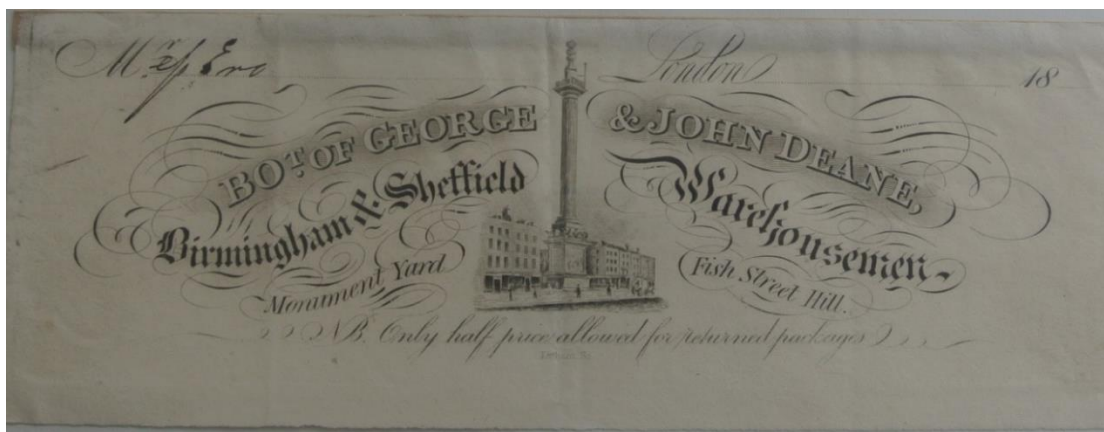 Mr London 18
BOT. OF GEORGE & JOHN DEANE,
Birmingham & Sheffield Warehousemen-
Monument Yard Fish Street Hill.
NB. Only half price allowed for returned packages